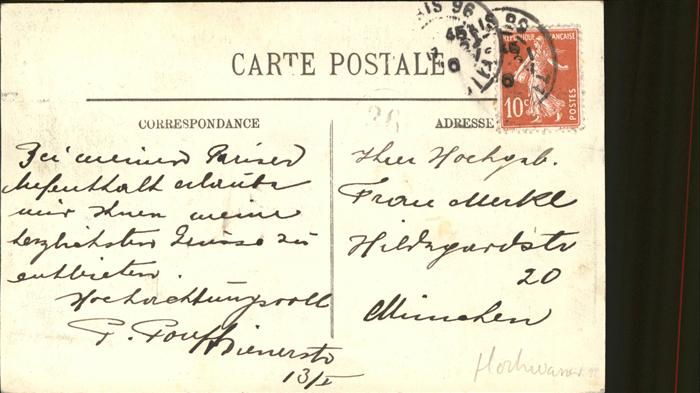 CARTE POSTALE
CORRESPONDANCE
ADRESSE
REPUBLIQUE FRANÇAISE
10c
POSTES
Bei meinem Pariser
Aufenthalt erlaube
mir Ihnen meine
herzlichsten Grüsse zu
entbieten.
Hochachtungsvoll
P.
Wienerstr
13/I
Ihrer Hochgeb.
Frau Merkl
Hildegardstr
20
München
Hochwasser